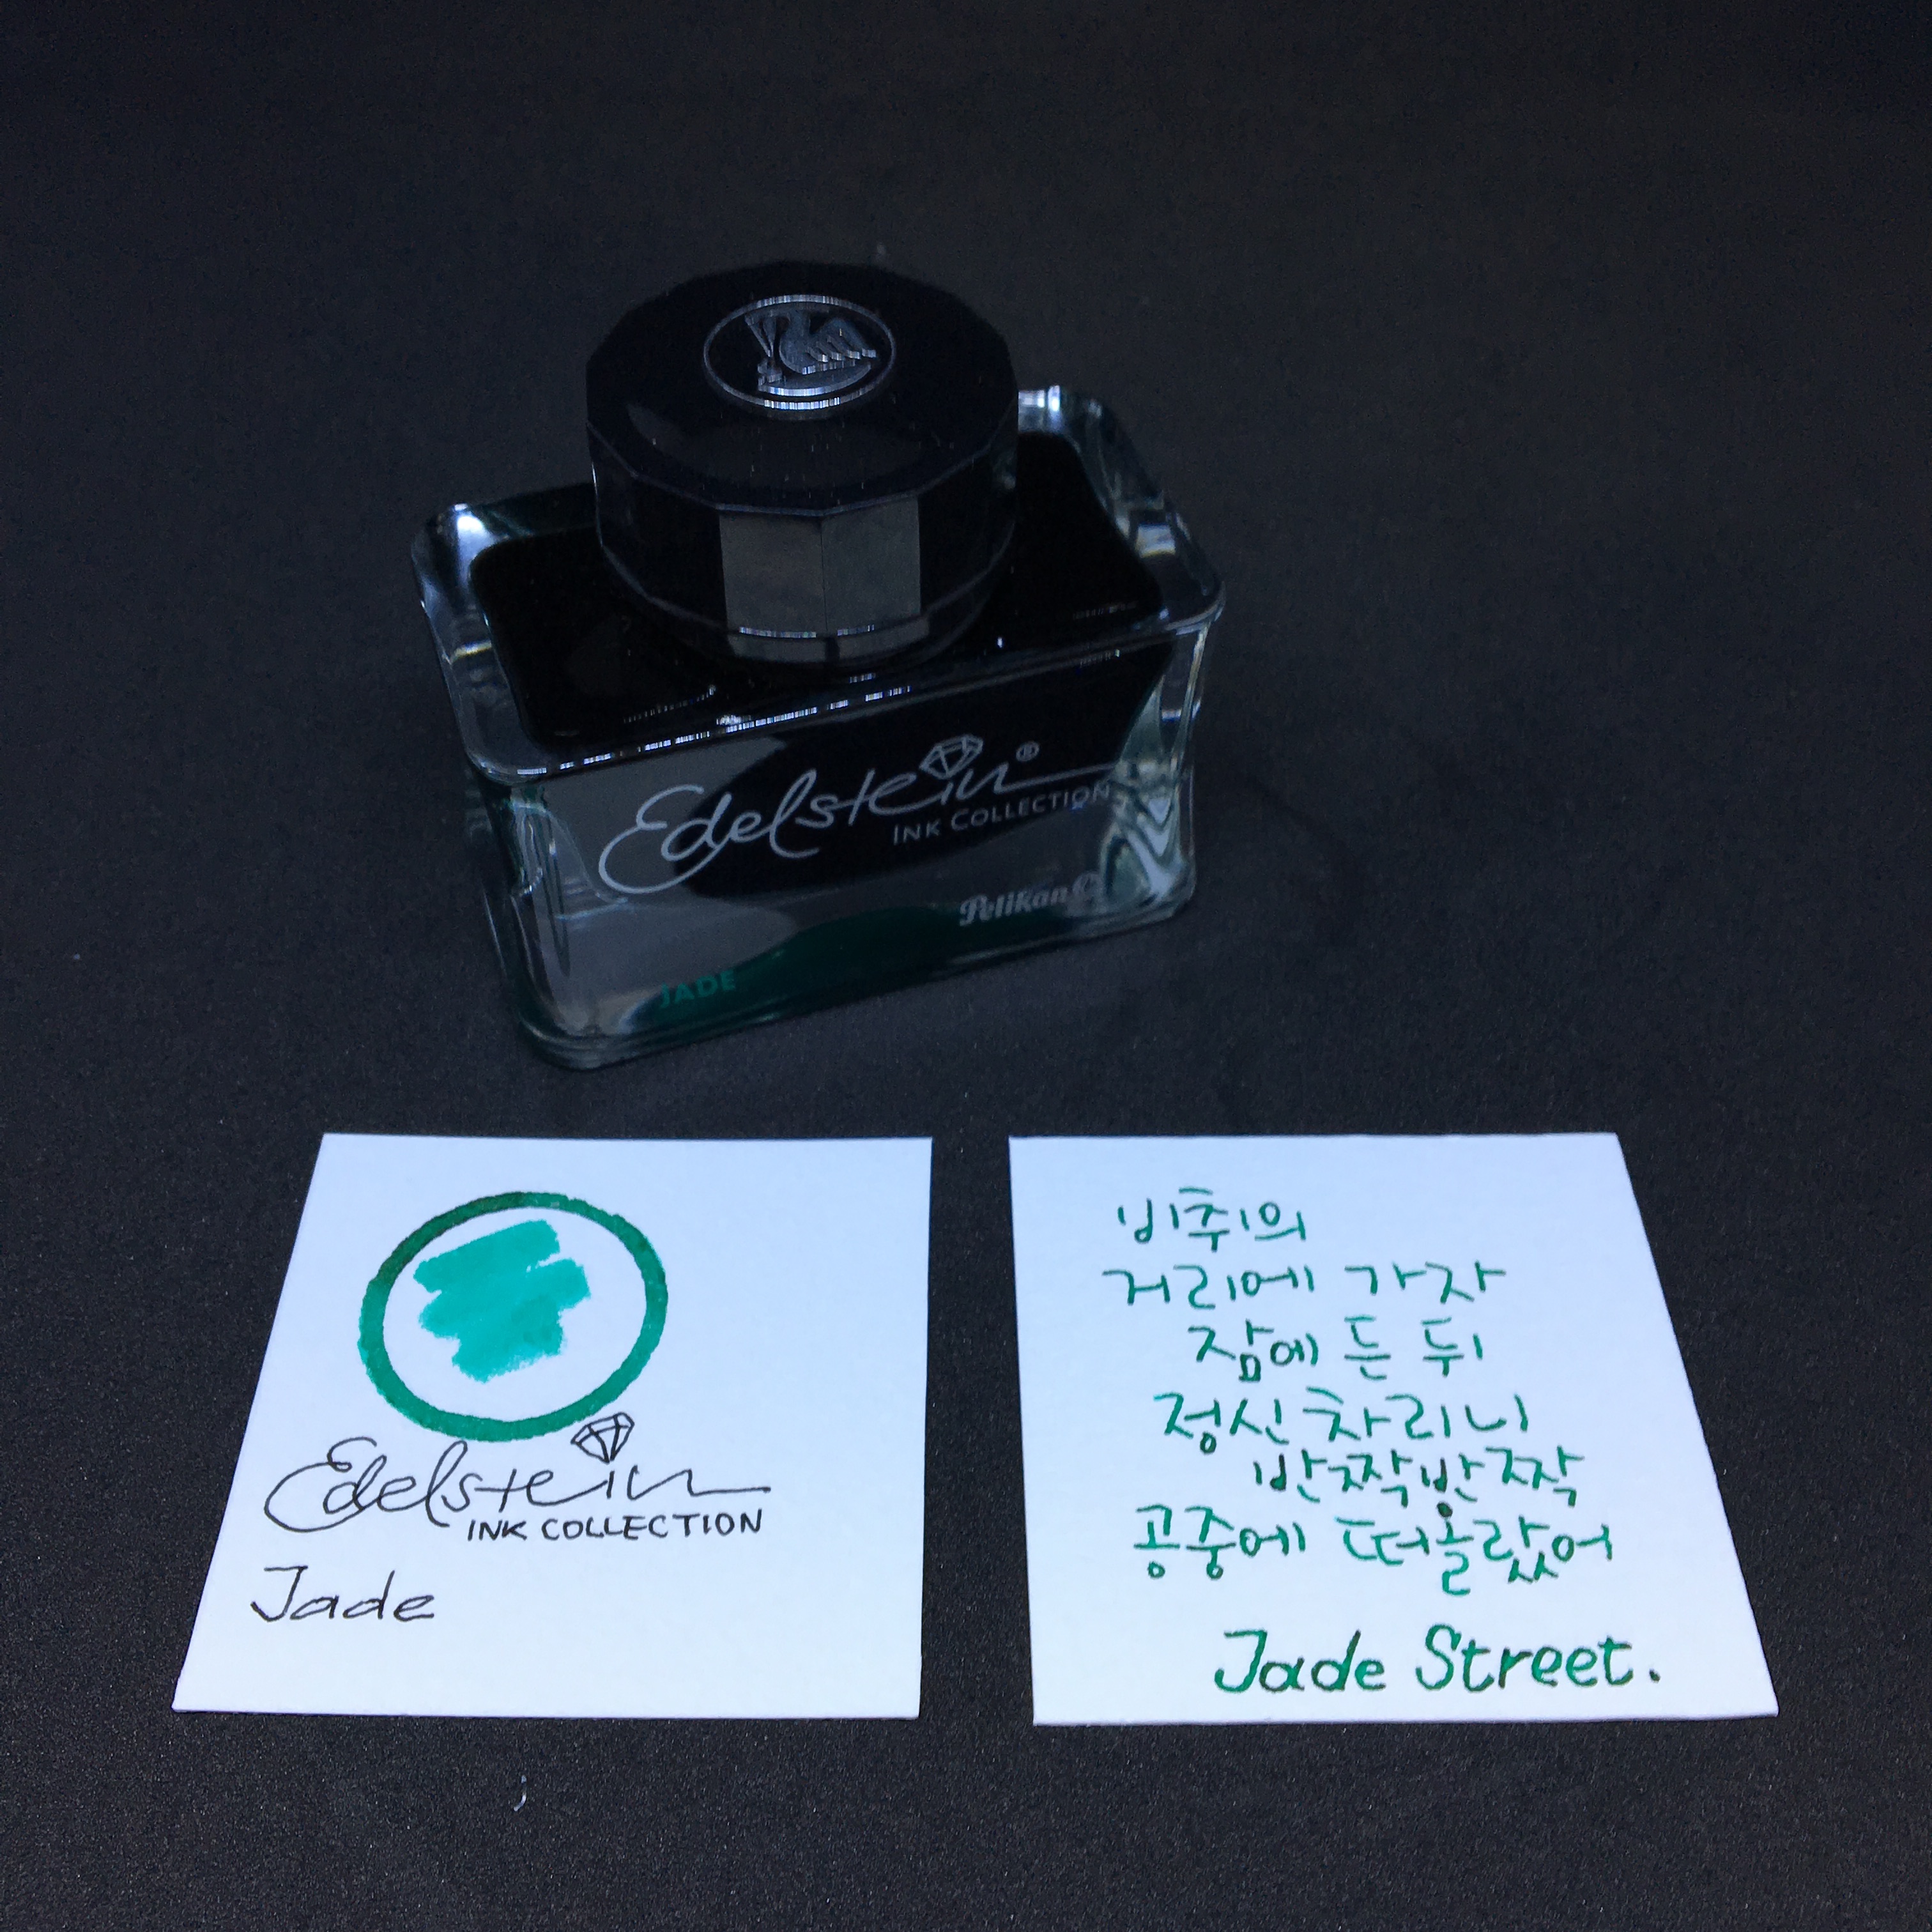 Edelstein®
INK COLLECTION
Pelikan
JADE
Edelstein
INK COLLECTION
Jade
비취의
거리에 가자
잠에 든 뒤
정신 차리니
반짝반짝
공중에 떠올랐어
Jade Street.